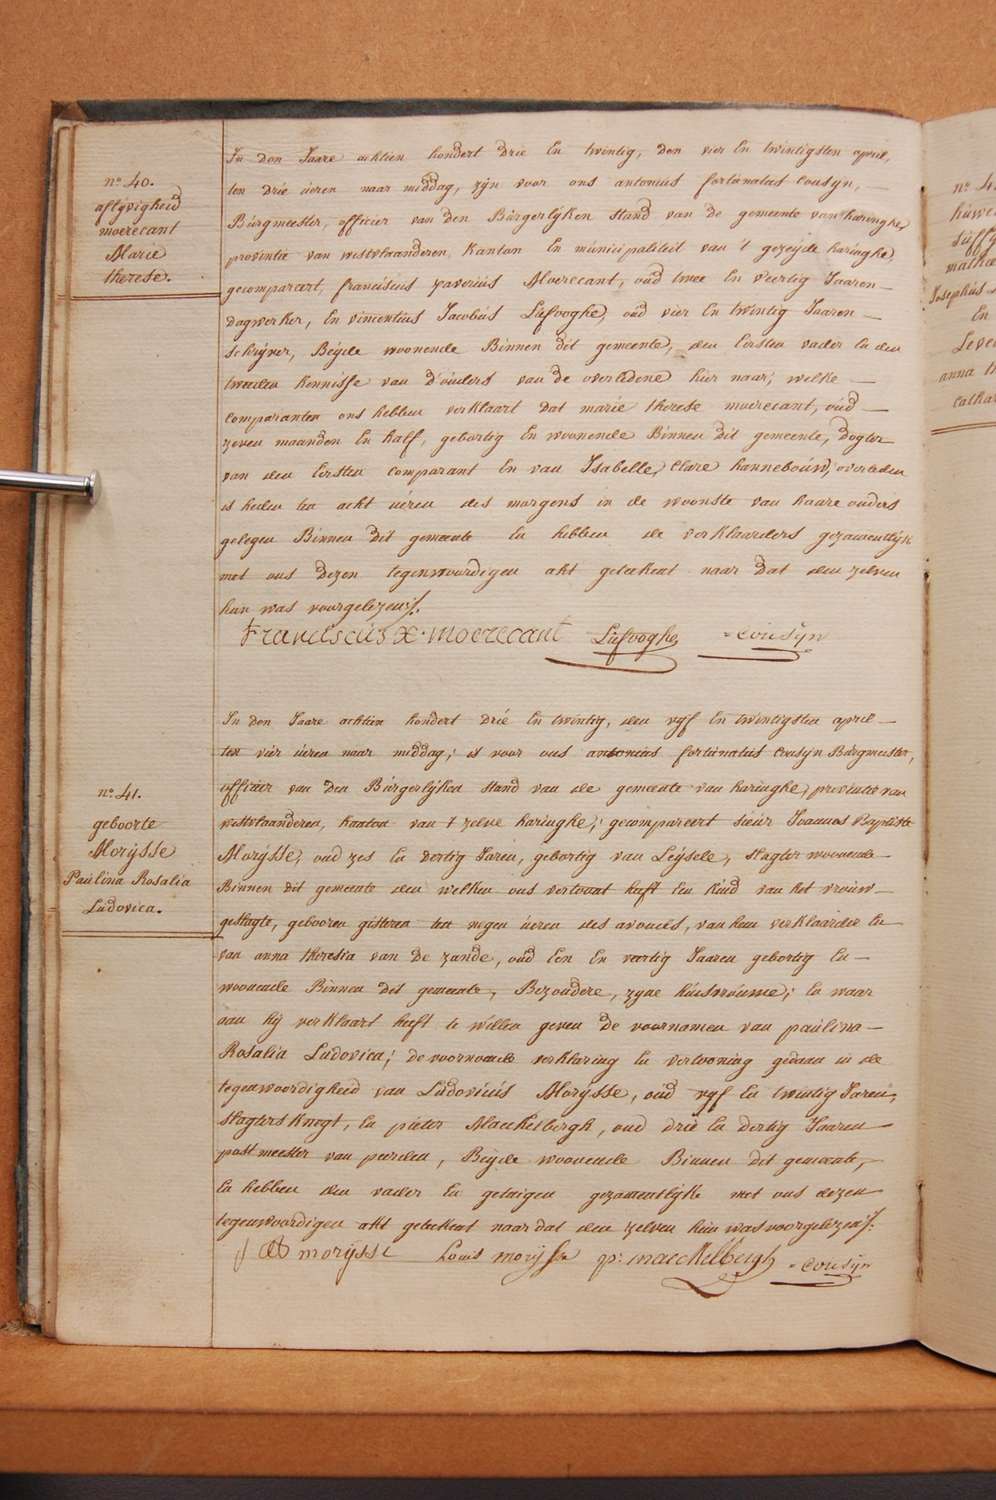 n.º 40.
aflÿvigheid
moerecant
Marie
therese.
In den Jaare achtien hondert drie En twintig, den vier En twintigsten april,
ten drie ueren naar middag, zÿn voor ons antonius fortunatus Cousyn,
Burgmeester, officier van den Burgerlÿken Stand van de gemeente van haringhe,
provintie van westvlaanderen, kanton En municipaliteit van 't gezeyde haringhe,
gecompareert, franciscus xaverius Moerecant, oud twee En veertig Jaaren
dagwerker, En vincentius Jacobus Liefooghe, oud vier En twintig Jaaren
Schrÿver, Beÿde woonende Binnen dit gemeente, den Eersten vader En den
tweeden kennisse van d'ouders van de overledene hier naar; welke
comparanten ons hebben verklaart dat marie therese moerecant, oud
zeven maanden En half, gebortig En woonende Binnen dit gemeente, dogter
van den Eersten comparant En van Isabelle Clare hannebouw, overleden
is heden ten acht uéren des morgens in de woonste van haare ouders
gelegen Binnen dit gemeente En hebben de verklaarders gezamentlÿk
met ons dezen tegenwoordigen akt geteekent naar dat den zelven
hun was voorgelezen
Franciscus X. moerecant Liefooghe Cousÿn
n.º 41.
geboorte
Morÿsse
Paulina Rosalia
Ludovica.
In den Jaare achtien hondert drié En twintig, den vÿf En twintigsten april
ten vier ueren naar middag; is voor ons antonius fortunatus Cousyn Burgmeester,
officier van den Burgerlÿken stand van de gemeente van haringhe, provintie van
westvlaanderen, kanton van 't zelve haringhe; gecompareert sieur Joannes Baptiste
Morÿsse, oud zes En dertig Jaren, gebortig van Leÿsele, slagter woonende
Binnen dit gemeente den welken ons vertoont heeft Een kind van het vrouw-
geslagte, gebooren gisteren ten negen ueren des avonds, van hem verklaarder En
van anna theresia van de zande, oud Een En veertig Jaaren gebortig En
woonende Binnen dit gemeente, Bezondere, zyne huisvrouwe; En waar
aan hÿ verklaart heeft te willen geven de voornamen van paulina
Rosalia Ludovica; de voornoemde verklaring En vertooning gedaan in de
tegenwoordigheid van Ludovicus Morÿsse, oud vÿf En twintig Jaren,
slagters knegt, En pieter Maeckelbergh, oud drie En dertig Jaaren
postmeester van peerden, Beÿde woonende Binnen dit gemeente,
En hebben den vader En getuigen gezamentlÿk met ons dezen
tegenwoordigen akt geteekent naar dat den zelven hun was voorgelezen
J B morÿsse Louis morÿsse p: maeckelbergh Cousÿn
n.º 4
huwe
anna th
cathar